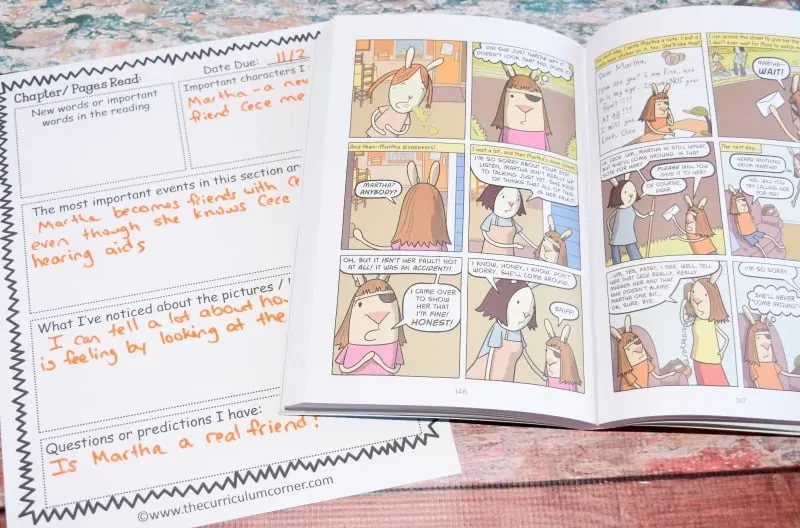 Date Due: 11/2
Chapter/Pages Read:
New words or important
words in the reading
Important characters I
Martha - a new
friend Cece me
The most important events in this section ar
Martha becomes friends with Ce
even though she knows Cece
hearing aids
What I've noticed about the pictures /
I can tell a lot about ho
is feeling by looking at the
Questions or predictions I have:
Is Martha a real friend?
©www.thecurriculumcorner.com
UGH! SHE JUST THREW UP! IT
DOESN'T LOOK THAT BAD, DOES IT?
And then—Martha disappears!
MARTHA?
ANYBODY?
I wait a bit, and then Martha's mom comes
I'M SO SORRY ABOUT YOUR EYE.
LISTEN, MARTHA ISN'T REALLY UP
TO TALKING JUST YET. SHE KIND
OF THINKS THAT ALL OF THIS
IS HER FAULT!
OH, BUT IT ISN'T HER FAULT! NOT
AT ALL! IT WAS AN ACCIDENT!
I CAME OVER
TO SHOW
HER THAT
I'M FINE!
HONEST!
I KNOW, HONEY, I KNOW. DON'T
WORRY. SHE'LL COME AROUND.
SNIFF!
146
The next day, I write Martha a note. I put a
Dear Martha,
How are you? I am fine, and
so is my eye.
NOT your
fault!!!!
At all!!!
I miss you
Love, Cece
run across the street to give her the
I don't even wait for Mom to watch me
MARTHA—
WAIT!
CECE, UM, MARTHA IS STILL UPSET,
BUT SHE'LL COME AROUND. IS THAT
NOTE FOR HER?
PLEASE WILL YOU
GIVE IT TO HER?
OF COURSE,
DEAR.
The next day...
HEARD ANYTHING
FROM MARTHA?
NO. WILL YOU
TRY CALLING HER
FOR ME?
UM, YES, PATSY, I SEE. WELL, TELL
HER THAT CECE REALLY, REALLY
MISSES HER AND THAT
SHE DOESN'T BLAME
MARTHA ONE BIT...
OK, SURE. BYE.
I'M SO SORRY
SHE'LL NEVER
"COME AROUND."
147